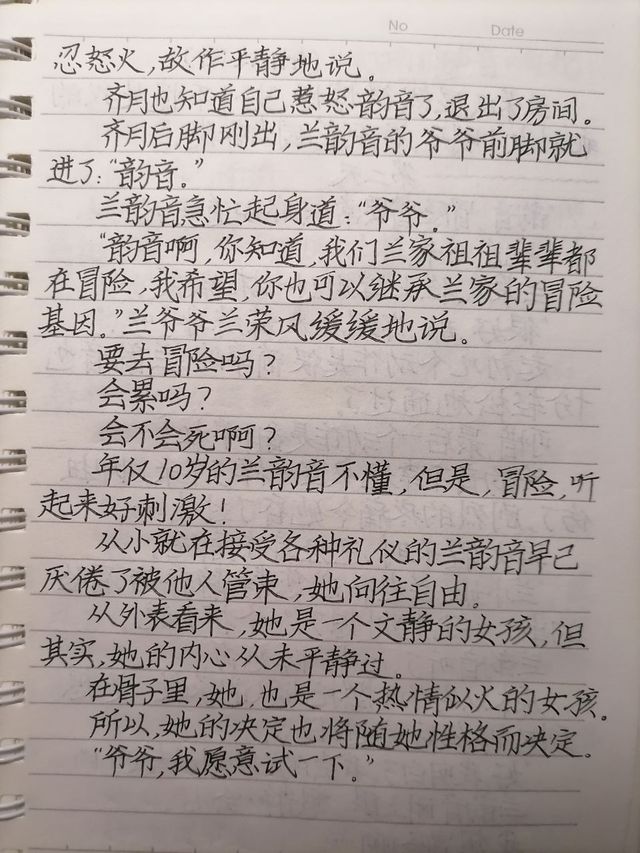 No Date
忍怒火,故作平静地说。
齐月也知道自己惹怒韵音了,退出了房间。
齐月后脚刚出,兰韵音的爷爷前脚就
进了:“韵音。”
兰韵音急忙起身道:“爷爷。”
“韵音啊,你知道,我们兰家祖祖辈辈都
在冒险,我希望,你也可以继承兰家的冒险
基因。”兰爷爷兰荣风缓缓地说。
要去冒险吗?
会累吗?
会不会死啊?
年仅10岁的兰韵音不懂,但是,冒险,听
起来好刺激!
从小就在接受各种礼仪的兰韵音早已
厌倦了被他人管束,她向往自由。
从外表看来,她是一个文静的女孩,但
其实,她的内心从未平静过。
在骨子里,她,也是一个热情似火的女孩。
所以,她的决定也将随她性格而决定。
“爷爷,我愿意试一下。”